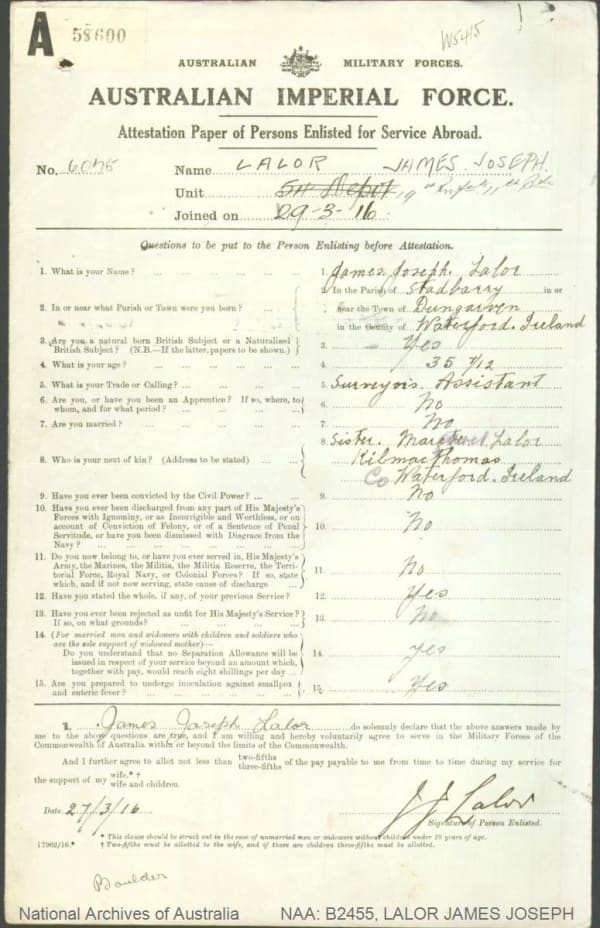 A 58600
W5415
AUSTRALIAN MILITARY FORCES.
AUSTRALIAN IMPERIAL FORCE.
Attestation Paper of Persons Enlisted for Service Abroad.
No. 6075 Name LALOR JAMES JOSEPH
Unit 5th Depot, 19th
Joined on 29-3-16.
Questions to be put to the Person Enlisting before Attestation.
1. What is your Name? ... 1. James Joseph Lalor
2. In or near what Parish or Town were you born? ... 2. In the Parish of Stadbarry in or
near the Town of Dungarven
in the County of Waterford. Ireland
3. Are you a natural born British Subject or a Naturalised
British Subject? (N.B.—If the latter, papers to be shown.) 3. Yes
4. What is your age? ... 4. 35 7/12
5. What is your Trade or Calling? ... 5. Surveyois. Assistant
6. Are you, or have you been an Apprentice? If so, where, to
whom, and for what period? ... 6. No
7. Are you married? ... 7. No
8. Who is your next of kin? (Address to be stated) ... 8. Sister. Margeret Lalor
Kilmacthomas
Co Waterford. Ireland
9. Have you ever been convicted by the Civil Power? ... 9. No
10. Have you ever been discharged from any part of His Majesty's
Forces with Ignominy, or as Incorrigible and Worthless, or on
account of Conviction of Felony, or of a Sentence of Penal
Servitude, or have you been dismissed with Disgrace from the
Navy? ... 10. No
11. Do you now belong to, or have you ever served in, His Majesty's
Army, the Marines, the Militia, the Militia Reserve, the Terri-
torial Force, Royal Navy, or Colonial Forces? If so, state
which, and if not now serving, state cause of discharge 11. No
12. Have you stated the whole, if any, of your previous Service? 12. Yes
13. Have you ever been rejected as unfit for His Majesty's Service?
If so, on what grounds? ... 13. No
14. (For married men and widowers with children and soldiers who
are the sole support of widowed mother)—
Do you understand that no Separation Allowance will be
issued in respect of your service beyond an amount which,
together with pay, would reach eight shillings per day ... 14. Yes
15. Are you prepared to undergo inoculation against smallpox
and enteric fever? ... 15. Yes
I, James Joseph Lalor do solemnly declare that the above answers made by
me to the above questions are true, and I am willing and hereby voluntarily agree to serve in the Military Forces of the
Commonwealth of Australia within or beyond the limits of the Commonwealth.
And I further agree to allot not less than two-fifths
three-fifths of the pay payable to me from time to time during my service for
the support of my wife.* †
wife and children.
Date 27/3/16 J J Lalor
Signature of Person Enlisted.
* This clause should be struck out in the case of unmarried men or widowers without children under 18 years of age.
17902/16.* † Two-fifths must be allotted to the wife, and if there are children three-fifths must be allotted.
Boulder
National Archives of Australia NAA: B2455, LALOR JAMES JOSEPH